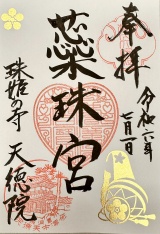 奉拝
令和六年
七月一日
蘂珠宮
珠姫の寺
天徳院